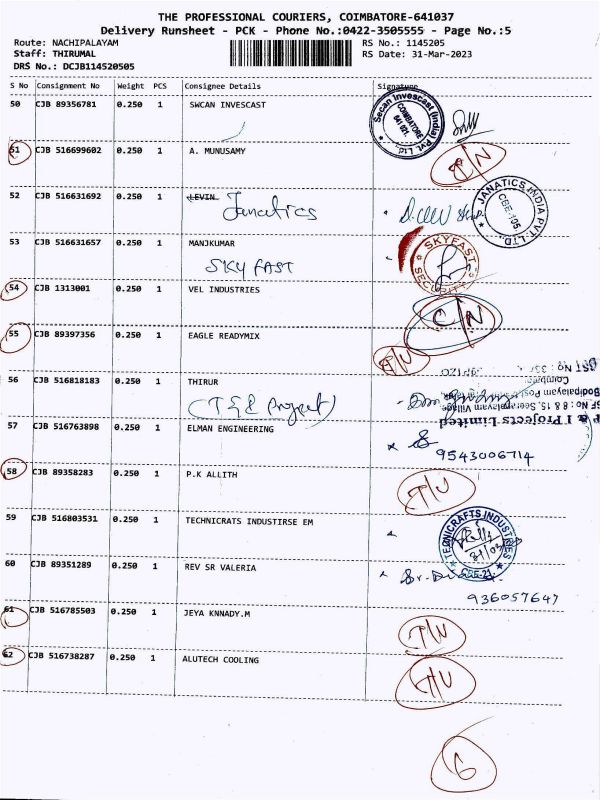 THE PROFESSIONAL COURIERS, COIMBATORE-641037
Delivery Runsheet - PCK - Phone No.:0422-3505555 - Page No.:5
Route: NACHIPALAYAM RS No.: 1145205
Staff: THIRUMAL RS Date: 31-Mar-2023
DRS No.: DCJB114520505
S No Consignment No Weight PCS Consignee Details Signature
50 CJB 89356781 0.250 1 SWCAN INVESCAST
Secan Invescast (India) Pvt. Ltd.,
COIMBATORE
641 021.
51 CJB 516699602 0.250 1 A. MUNUSAMY
52 CJB 516631692 0.250 1 LEVIN Janatics
JANATICS INDIA PVT. LTD.,
CBE-105.
53 CJB 516631657 0.250 1 MANJKUMAR
SKY FAST
SKYFAST
SECURITY
54 CJB 1313001 0.250 1 VEL INDUSTRIES
C/N
55 CJB 89397356 0.250 1 EAGLE READYMIX
56 CJB 516818183 0.250 1 THIRUR
(T & I Project)
P & I Projects Limited
SF No : 8 & 15, Seerapalayam Village
Bodipalayam Post
57 CJB 516763898 0.250 1 ELMAN ENGINEERING
9543006714
58 CJB 89358283 0.250 1 P.K ALLITH
59 CJB 516803531 0.250 1 TECHNICRATS INDUSTIRSE EM
TECNICRAFTS INDUSTRIES
CBE-21.
60 CJB 89351289 0.250 1 REV SR VALERIA
936057647
61 CJB 516785503 0.250 1 JEYA KNNADY.M
62 CJB 516738287 0.250 1 ALUTECH COOLING
6